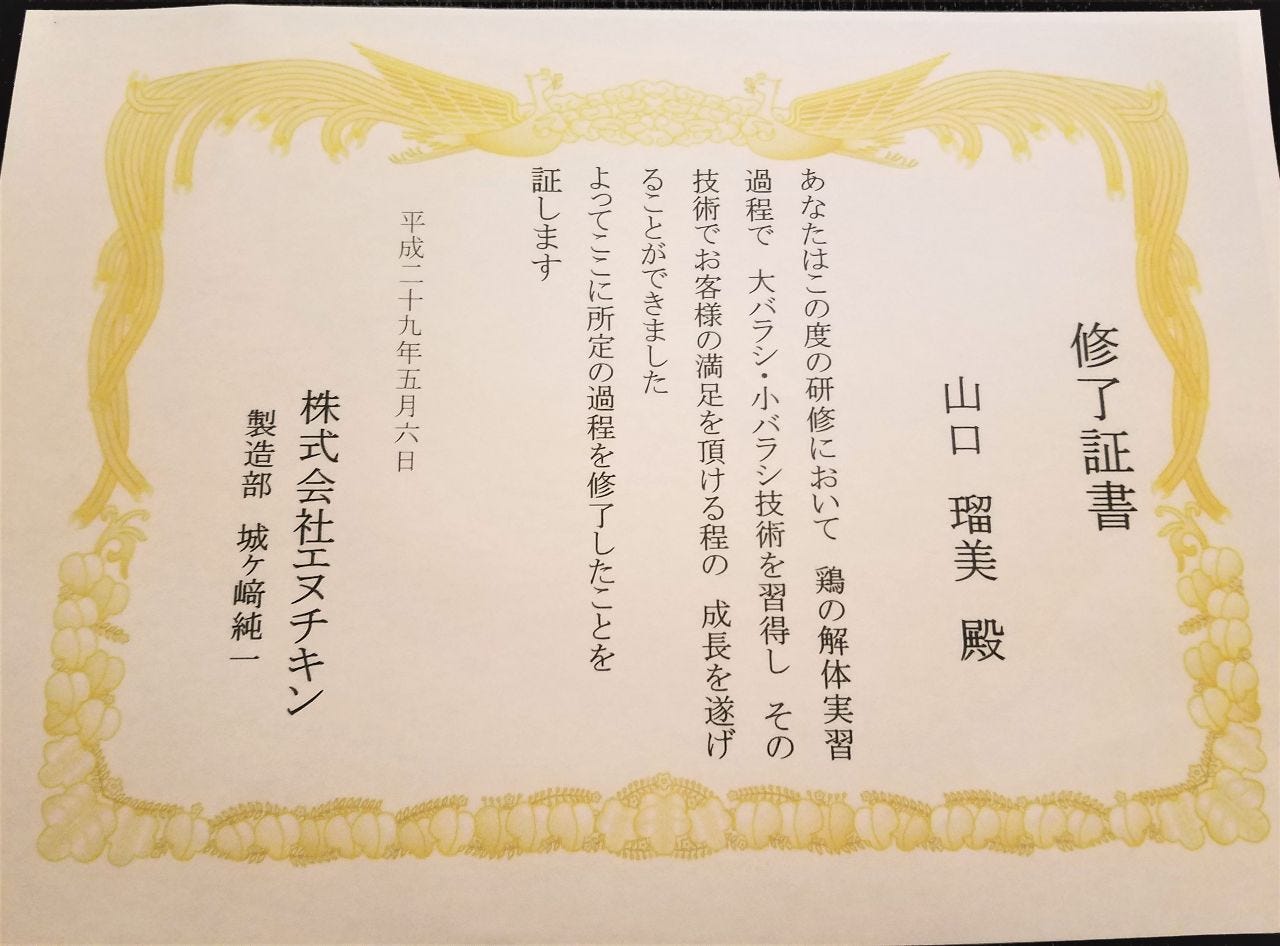 修了証書
山口　瑠美　殿
あなたはこの度の研修において　鶏の解体実習
過程で　大バラシ・小バラシ技術を習得し　その
技術でお客様の満足を頂ける程の　成長を遂げ
ることができました
よってここに所定の過程を修了したことを
証します
平成二十九年五月六日
株式会社エヌチキン
製造部　城ヶ﨑純一